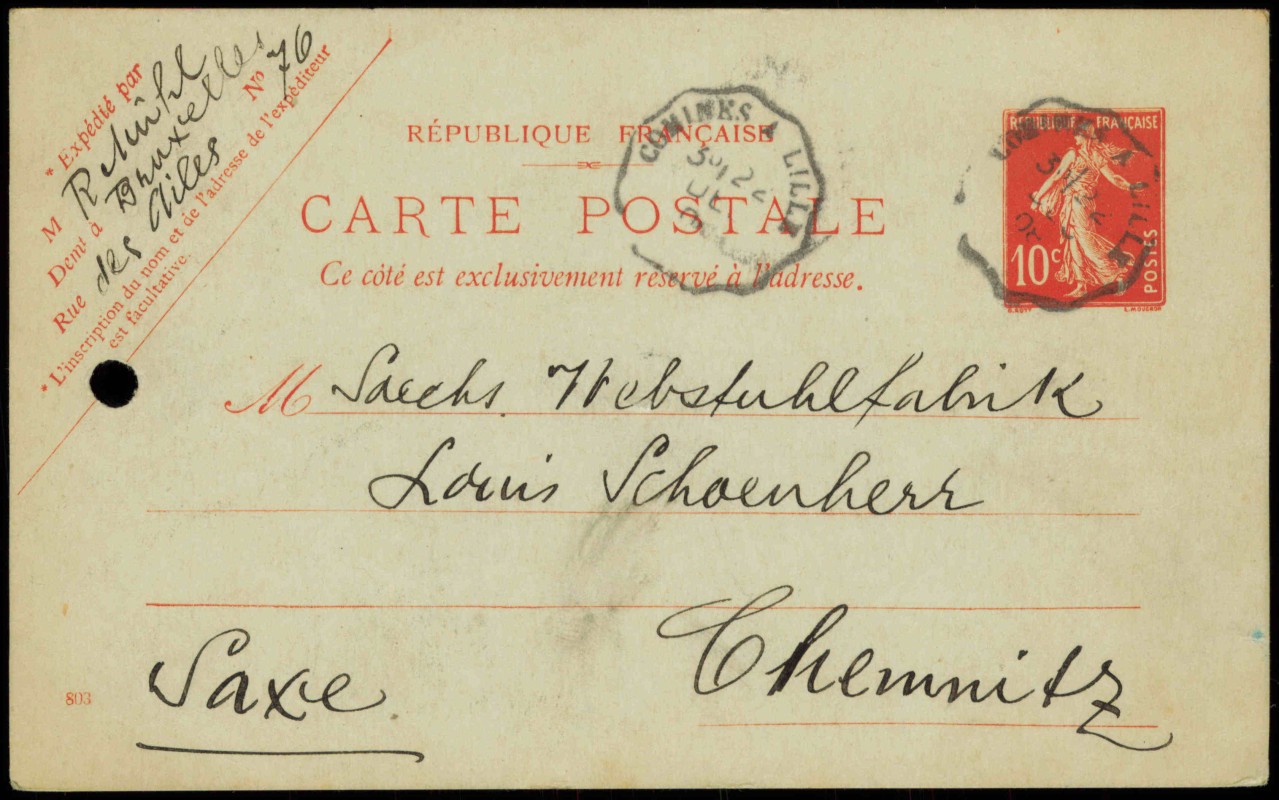 * Expédié par
M R Mühl
Demt à Bruxelles
Rue des Ailes No 76
* L'inscription du nom et de l'adresse de l'expéditeur
est facultative.
RÉPUBLIQUE FRANÇAISE
CARTE POSTALE
Ce côté est exclusivement réservé à l'adresse.
COMINES A LILLE
22
COMINES A LILLE
08
REPUBLIQUE FRANÇAISE
10c
POSTES
O.ROTY
L.MOUCHON
M Saechs. Webstuhlfabrik
Louis Schoenherr
Chemnitz
Saxe
803